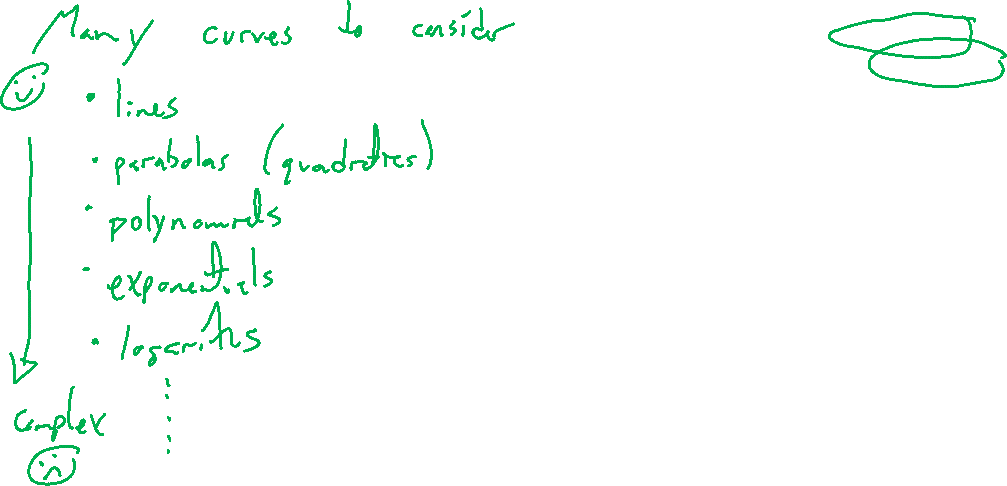 Many curves to consider
• lines
• parabolas (quadratics)
• polynomials
• exponentials
• logarithms
complex